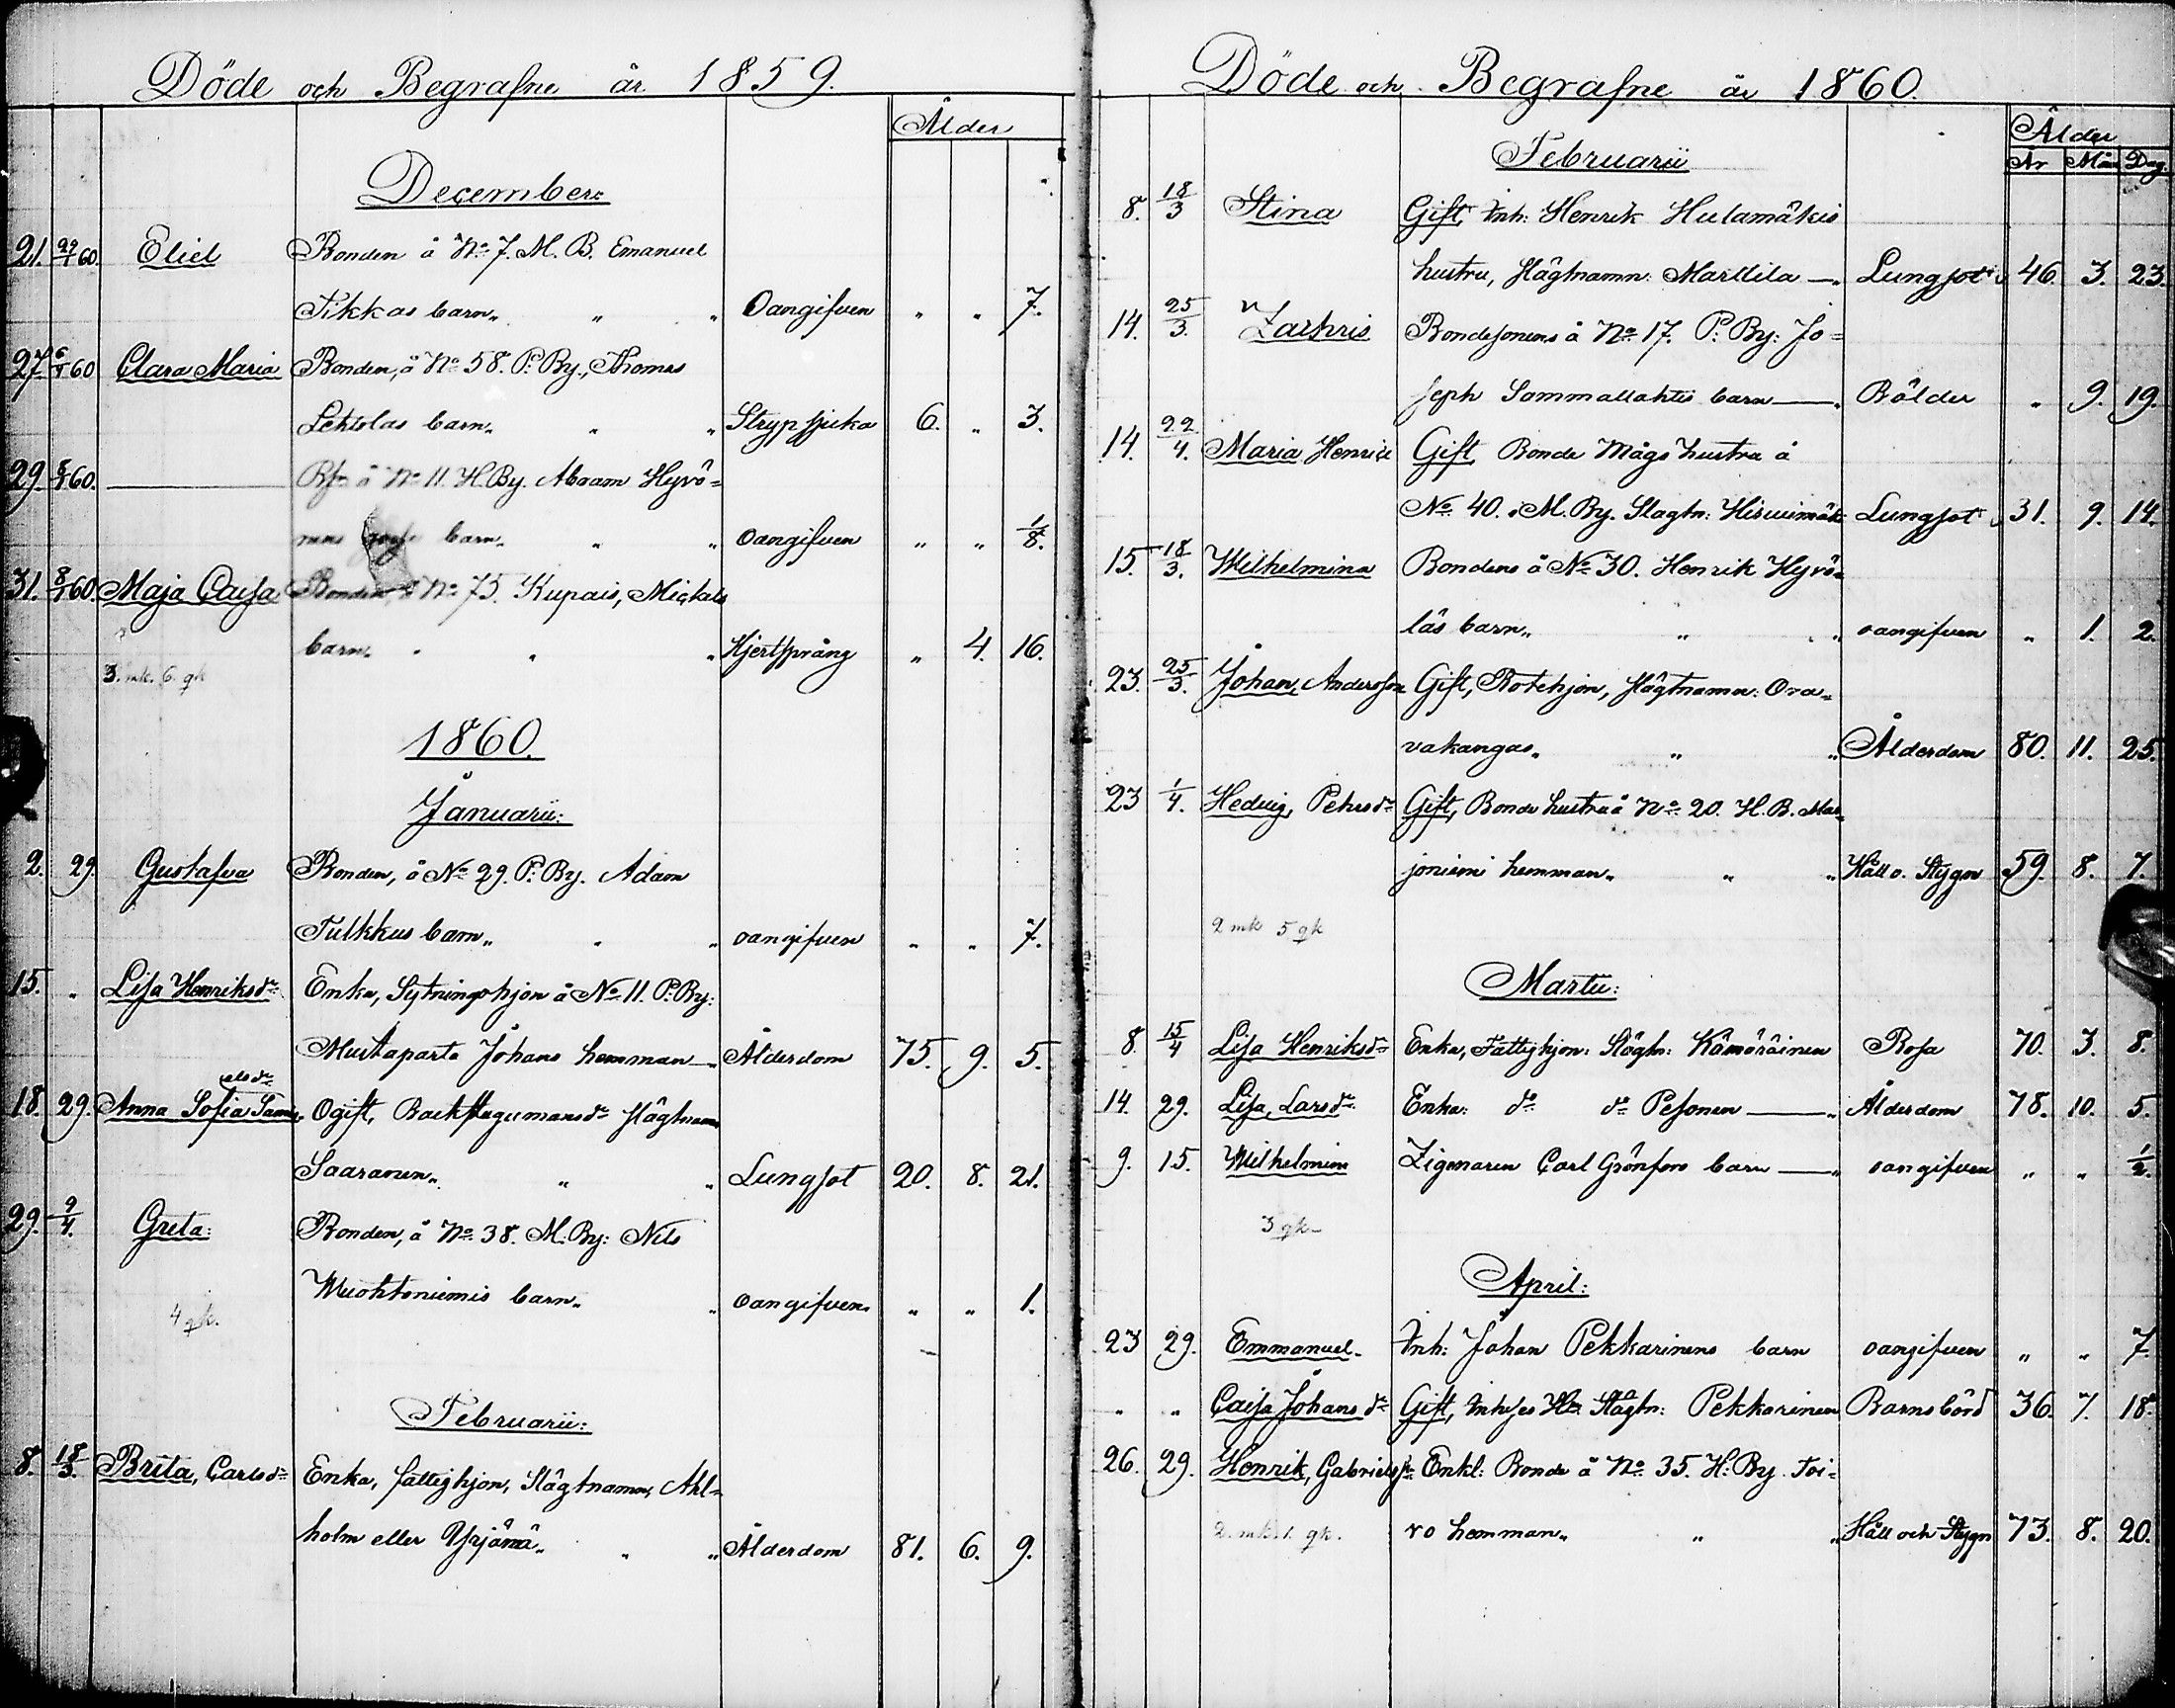 Döde och Begrafne år 1859.
Ålder
December:
21. 29/1 60. Eliel Bonden å No 7. M. B. Emanuel
Tikkas barn " " Oangifven " " 7.
27. 6/1 60 Clara Maria Bonden, å No 58. P. By., Thomas
Lehtolas barn " " Strypsjuka 6. " 3.
29. 8/1 60. — å No 11. H. By. Abram Hyvö-
barn " " oangifven " " 1/8.
31. 8/1 60. Maja Caisa Bonden, å No 75. Kupais, Mickels
barn " " " Hjertsprång " 4. 16.
3. mk. 6. qk
1860.
Januarii:
2. 29. Gustafva Bonden, å No 29. P. By. Adam
Tulkkus barn " " oangifven " " 7.
15. " Lisa Henriksdr Enka, Sytningshjon å No 11. P. By:
Mustaparta Johans hemman — Ålderdom 75. 9. 5.
elsdr
18. 29. Anna Sofia Samu- Ogift, Backstugumansdr slägtnamn
Saaranen " " Lungsot 20. 8. 21.
29. 9/4. Greta: Bonden, å No 38. M. By: Nils
Wuohtoniemis barn " " oangifven " " 1.
4 qk.
Februarii:
8. 18/3. Brita, Carlsdr Enka, fattighjon, Slägtnamn, Ahl-
holm eller Yrjänä " " Ålderdom 81. 6. 9.
Döde och Begrafne år 1860.
Ålder
Februarii År Mån Dag.
8. 18/3 Stina Gift, Inh: Henrik Hulamäkis
hustru, slägtnamn: Marttila — Lungsot 46. 3. 23.
14. 25/3. Zachris Bondesonens å No 17. P. By: Jo-
seph Sammallahtis barn — Bölder " 9. 19.
14. 22/4. Maria Henric Gift Bonde Mågs hustru å
No 40. M. By. Slagtn: Hirvimäk Lungsot 31. 9. 14.
15. 18/3. Wilhelmina Bondens å No 30. Henrik Hyvö-
läs barn " " " oangifven " 1. 2.
23. 25/3. Johan, Andersson Gift, Rotehjon, slägtnamn: Ora-
vakangas " " " Ålderdom 80. 11. 25.
23 1/4. Hedvig, Pehrsdr Gift, Bonde hustru å No 20. H. B. Mar-
joniemi hemman " " Håll o. Stygn 59. 8. 7.
2 mk 5 qk
Martii:
8. 15/4 Lisa Henriksdr Enka, Fattighjon: Slägtn: Kämäräinen Rosa 70. 3. 8.
14. 29. Lisa, Larsdr Enka: do do Pesonen — Ålderdom 78. 10. 5.
9. 15. Wilhelmina Zigenaren Carl Grönfors barn — oangifven " " 1/2.
3 qk —
April:
23 29. Emmanuel Inh: Johan Pekkarinens barn oangifven " " 7.
" " Caisa Johansdr Gift, Inhses Slägtn: Pekkarinen Barnsbörd 36. 7. 18.
26. 29. Henrik, Gabrielsson Enkl: Bonde å No 35. H. By. Toi-
2. mk. 1. qk. vo hemman " " Håll och Stygn 73. 8. 20.